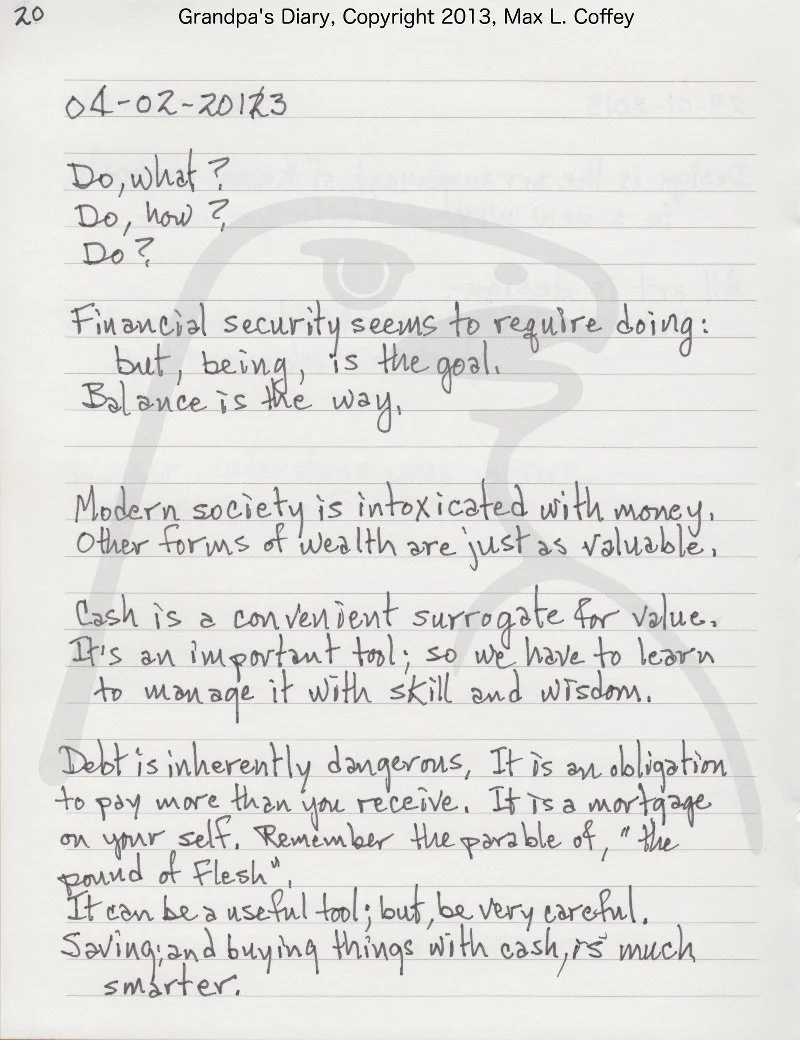 20
Grandpa's Diary, Copyright 2013, Max L. Coffey
04-02-2013
Do, what?
Do, how?
Do?
Financial security seems to require doing:
but, being, is the goal.
Balance is the way.
Modern society is intoxicated with money.
Other forms of wealth are just as valuable.
Cash is a convenient surrogate for value.
It's an important tool; so we have to learn
to manage it with skill and wisdom.
Debt is inherently dangerous, It is an obligation
to pay more than you receive. It is a mortgage
on your self. Remember the parable of, "the
pound of Flesh".
It can be a useful tool; but, be very careful.
Saving; and buying things with cash, is much
smarter.